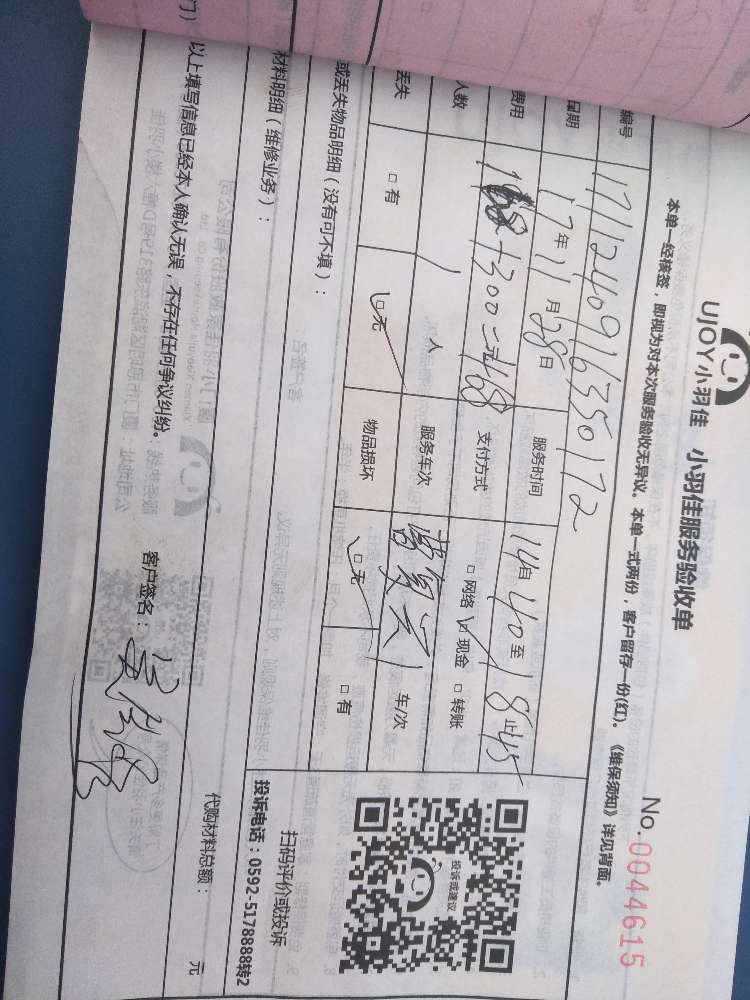 UJOY小羽佳 小羽佳服务验收单
No.0044615
本单一经接签，即视为对本次服务验收无异议。本单一式两份，客户留存一份(红)。《维保须知》详见背面。
编号 1711240916350172
日期 17年11月28日 服务时间 14自40至18止45
费用 168+300=元468 支付方式 □网络 ☑现金 □转账
人数 1人 服务车次 车/次
丢失 □有 ☑无 物品损坏 ☑无 □有
或丢失物品明细（没有可不填）：
材料明细（维修业务）：
代购材料总额： 元
以上填写信息已经本人确认无误，不存在任何争议纠纷。
客户签名：
投诉或建议
扫码评价或投诉
投诉电话：0592-5178888转2